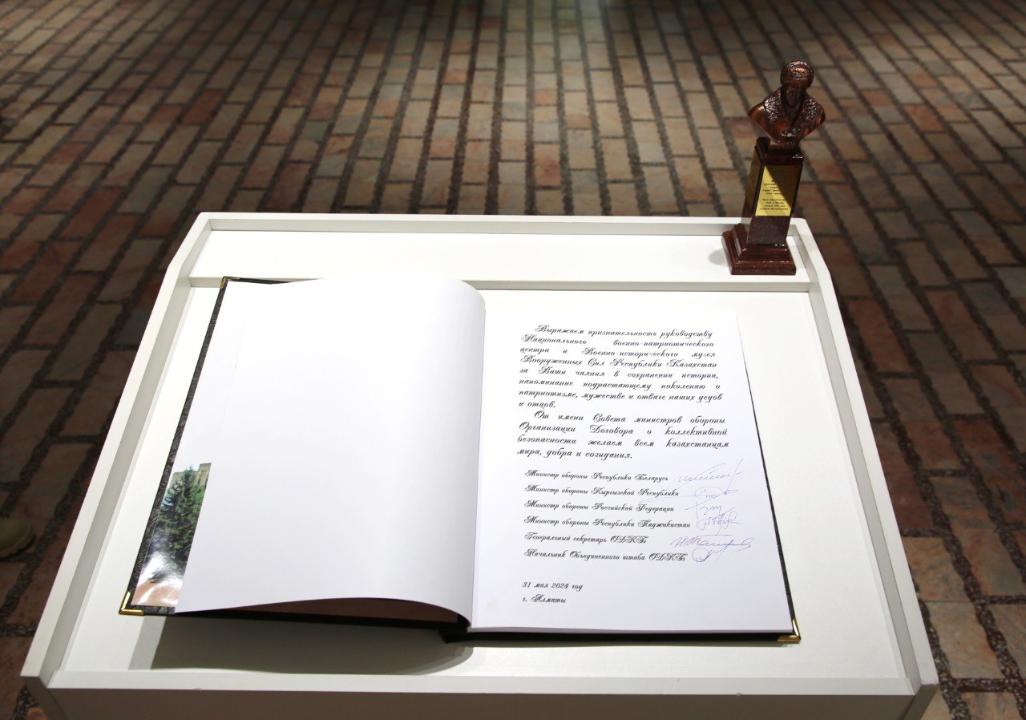 Выражаем признательность руководству
Национального военно-патриотического
центра и Военно-исторического музея
Вооруженных Сил Республики Казахстан
за Ваши чаяния в сохранении истории,
напоминание подрастающему поколению о
патриотизме, мужестве и отваге наших дедов
и отцов.
От имени Совета министров обороны
Организации Договора о коллективной
безопасности желаем всем казахстанцам
мира, добра и созидания.
Министр обороны Республики Беларусь
Министр обороны Кыргызской Республики
Министр обороны Российской Федерации
Министр обороны Республики Таджикистан
Генеральный секретарь ОДКБ
Начальник Объединенного штаба ОДКБ
31 мая 2024 год
г. Алматы